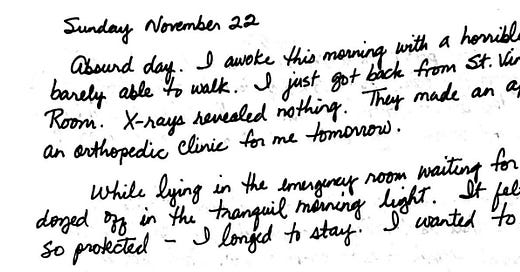 Sunday November 22
Absurd day. I awoke this morning with a horrible
barely able to walk. I just got back from St. Vin
Room. X-rays revealed nothing. They made an a
an orthopedic clinic for me tomorrow.
While lying in the emergency room waiting for
dozed off in the tranquil morning light. It fel
so protected – I longed to stay. I wanted to